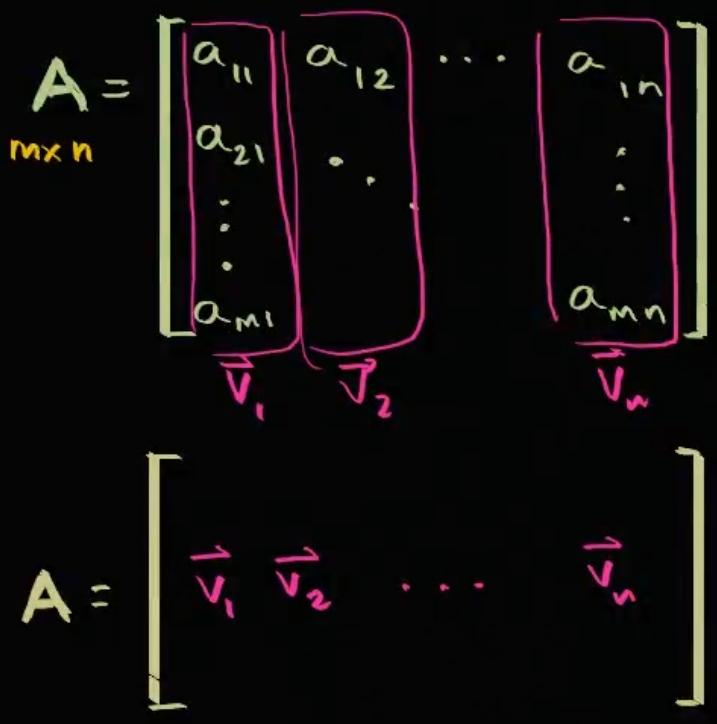 A = [ a₁₁ a₁₂ ... a₁ₙ
m×n
a₂₁ ⋱ ⋮
⋮
aₘ₁ aₘₙ ]
v⃗₁ v⃗₂ v⃗ₙ
A = [ v⃗₁ v⃗₂ ... v⃗ₙ ]